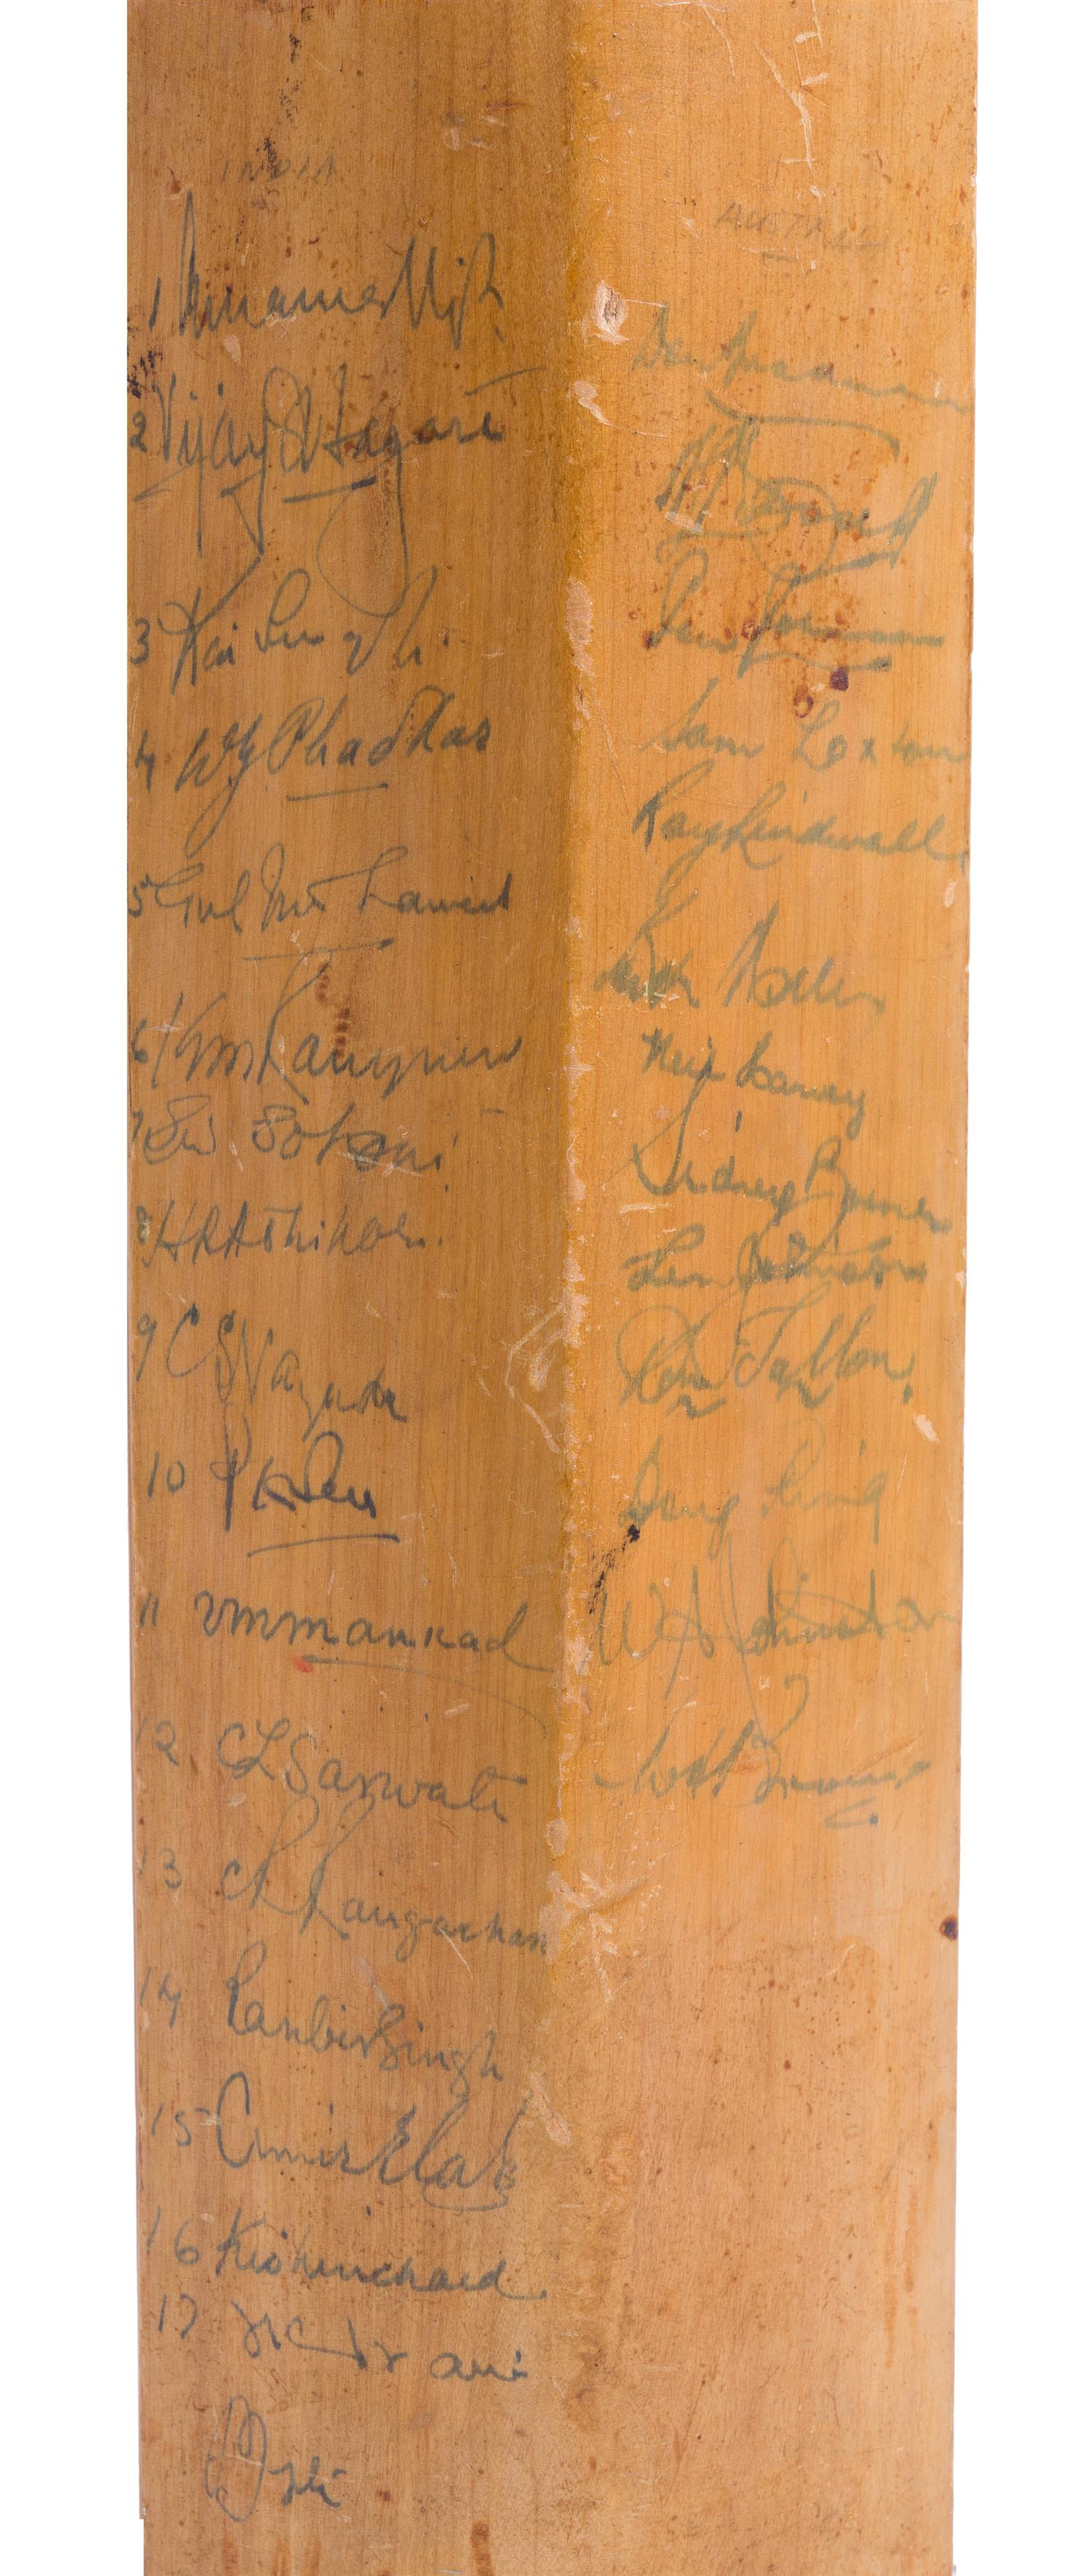 INDIA
1 Amarnath
2 Vijay S Hazare
3 Rai Singh
4 DG Phadkar
5 Gul Mohamed
6 KM Rangnekar
7 Ew Sohoni
8 HR Adhikari
9 C S Nayudu
10 P K Sen
11 vmmankad
12 CT Sarwate
13 CR Rangachari
14 Ranbir Singh
15 Amir Elahi
16 Kishenchand
17 JK Irani
AUSTRALIA
Don Bradman
Sam Loxton
Ray Lindwall
Neil Harvey
Sidney Barnes
Len Johnson
Don Tallon
Doug Ring
W A Johnston